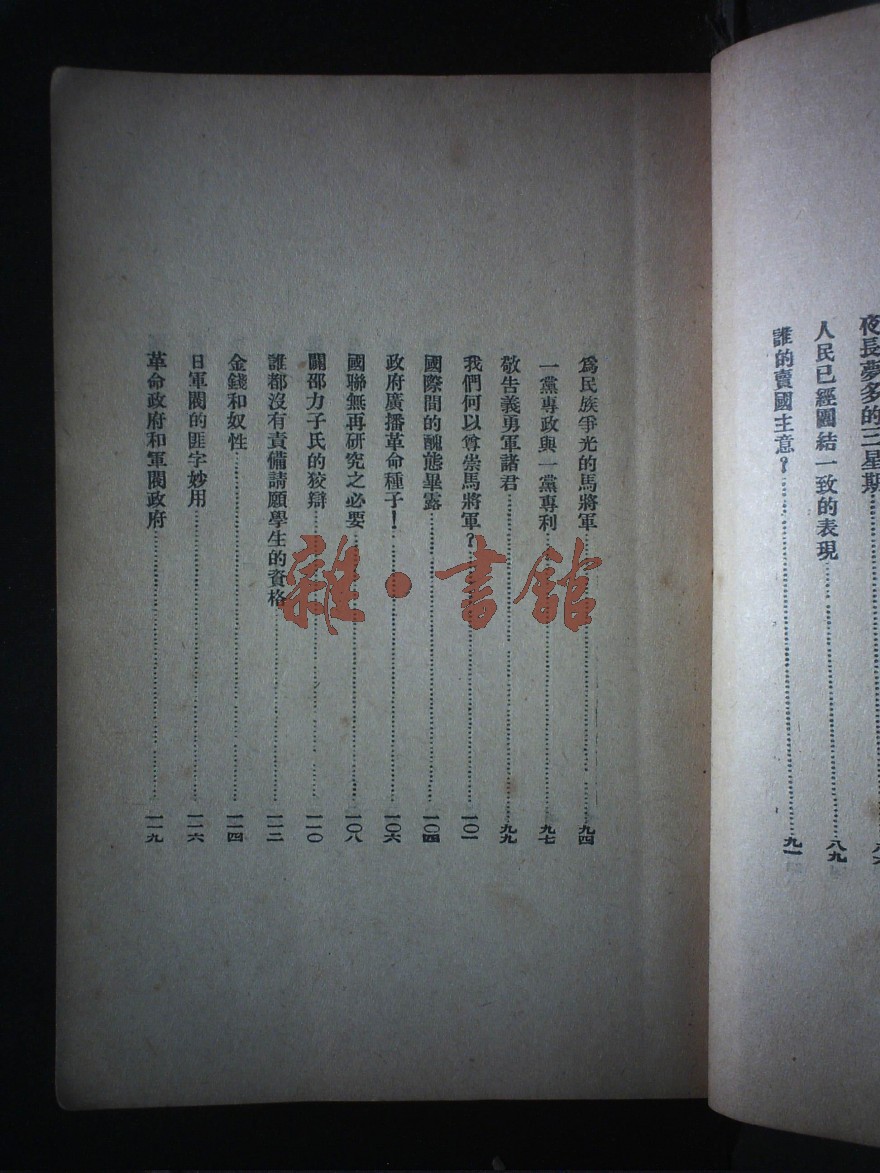 夜長夢多的三星期
人民已經團結一致的表現 八九
誰的賣國主意？ 九一
爲民族爭光的馬將軍 九四
一黨專政與一黨專利 九七
敬告義勇軍諸君 九九
我們何以尊崇馬將軍？ 一〇一
國際間的醜態畢露 一〇四
政府廣播革命種子！ 一〇六
國聯無再研究之必要 一〇八
闢邵力子氏的狡辯 一一〇
誰都沒有責備請願學生的資格 一一二
金錢和奴性 一一四
日軍閥的匪字妙用 一一六
革命政府和軍閥政府 一一九
雜·書館